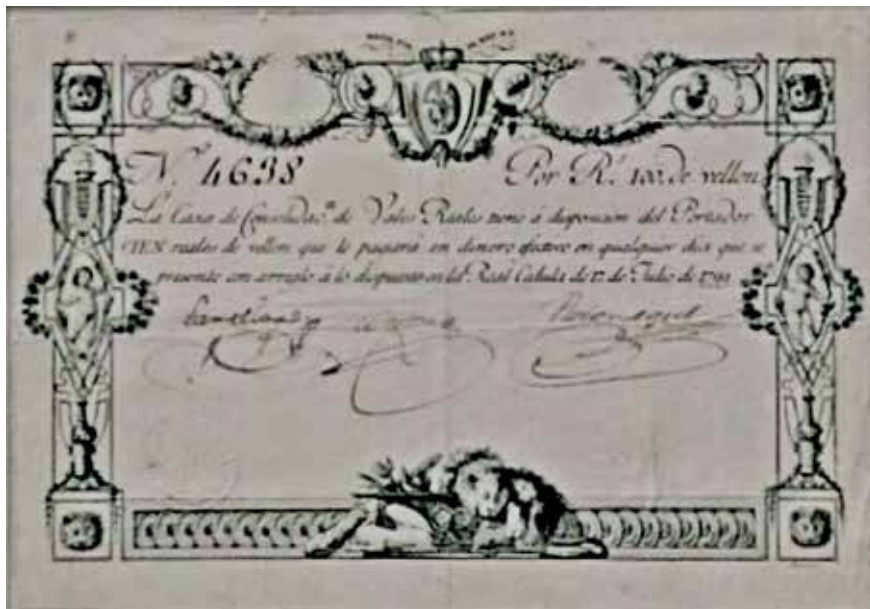 Nº 4638 Por Rˢ. 100. de vellon
La Caxa de Consolidac.ⁿ de Vales Reales tiene á disposicion del Portador
CIEN reales de vellon que le pagará en dinero efectivo en qualquier dia que se
presente con arreglo á lo dispuesto en la Real Cédula de 17. de Julio de